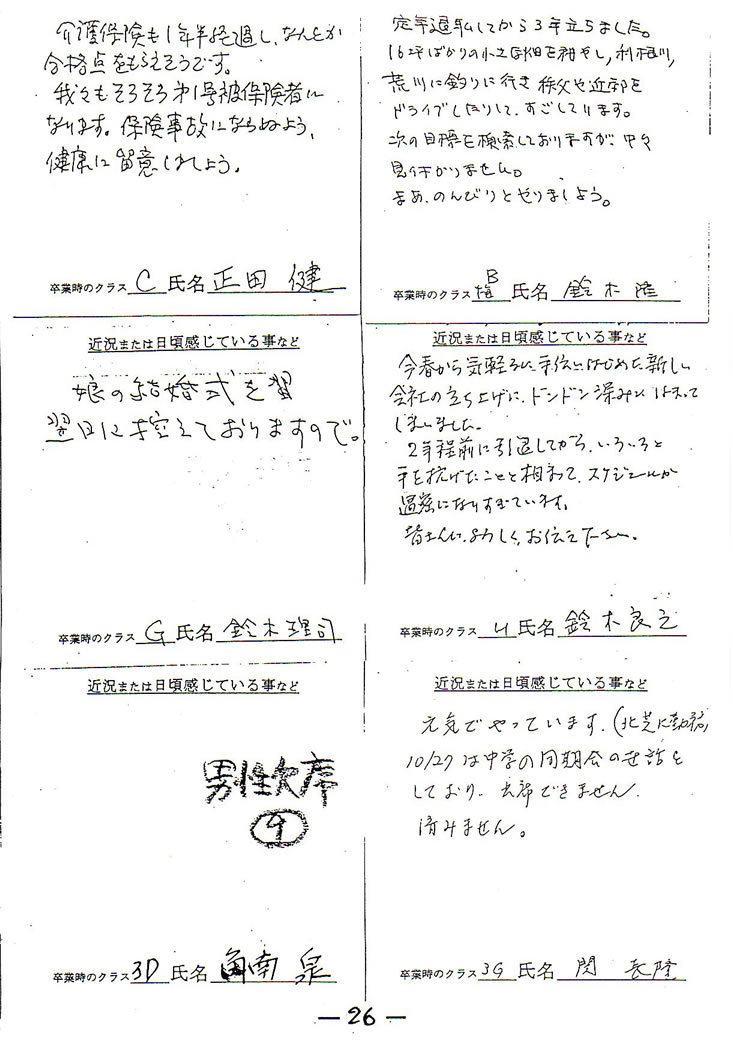 介護保険も1年半経過し、なんとか
合格点をもらえそうです。
我々もそろそろ第1号被保険者に
なります。保険事故にならぬよう、
健康に留意しましょう。
卒業時のクラス C 氏名 正田 健
定年退職してから3年立ちました。
16坪ばかりの小さな畑を耕やし、利根川、
荒川に釣りに行き 秩父や近郊を
ドライブしたりして、すごしています。
次の目標を検索しておりますが、中々
見付かりません。
まあ、のんびりとやりましょう。
卒業時のクラス B 氏名 鈴木 隆
近況または日頃感じている事など
娘の結婚式を
翌日に控えておりますので。
卒業時のクラス G 氏名 鈴木理司
近況または日頃感じている事など
今春から気軽に手伝いはじめた新しい
会社の立ち上げに、ドンドン深みにはまって
しまいました。
2年程前に引退してから、いろいろと
手を拡げたことと相まって、スケジュールが
過密になりすぎています。
皆さんに、よろしく、お伝え下さい。
卒業時のクラス 氏名 鈴木良之
近況または日頃感じている事など
男性欠席
卒業時のクラス 3D 氏名 角南 泉
近況または日頃感じている事など
元気でやっています。(北芝に勤務)
10/27は中学の同期会の世話を
しており、出席できません。
済みません。
卒業時のクラス 3G 氏名 関 長隆
— 26 —